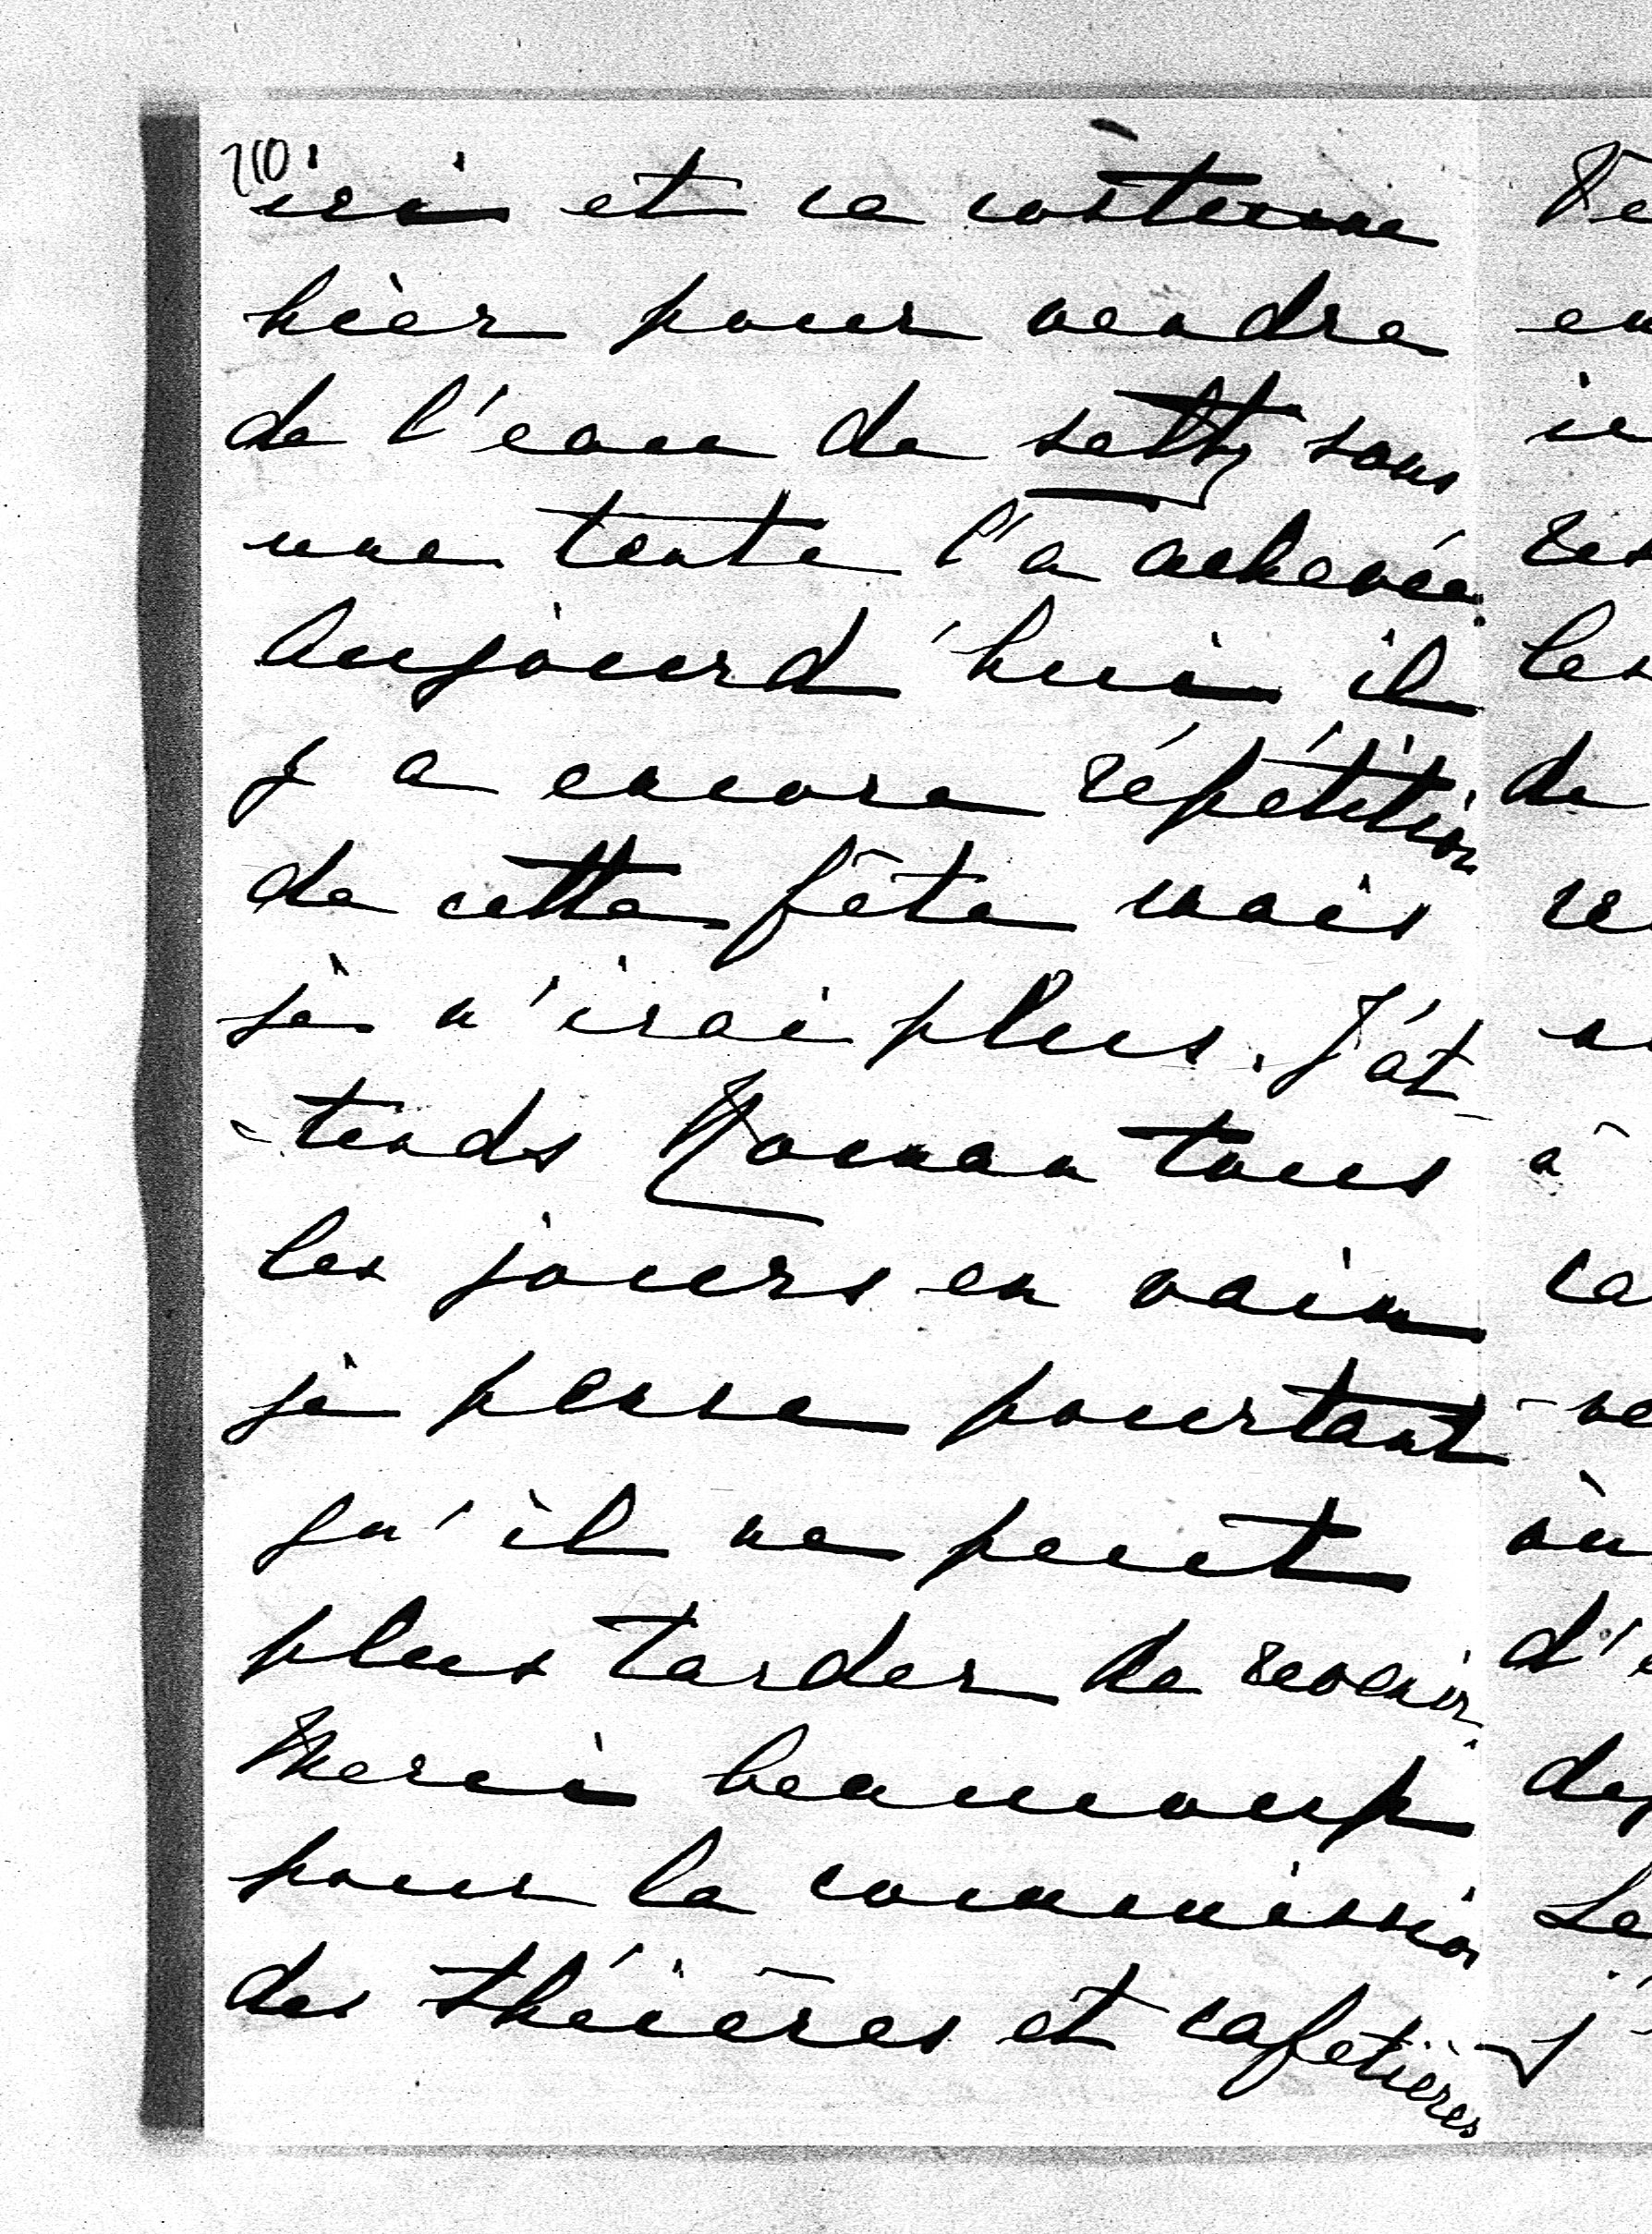 210
ici et ce costume
hier pour vendre
de l'eau de seltz sous
une tente l'a achevée.
Aujourd'hui il
y a encore répétition
de cette fête mais
je n'irai plus. J'at-
-tends Roman tous
les jours en vain
je pense pourtant
qu'il ne peut
plus tarder de revenir.
Merci beaucoup
pour la commission
des théières et cafetières